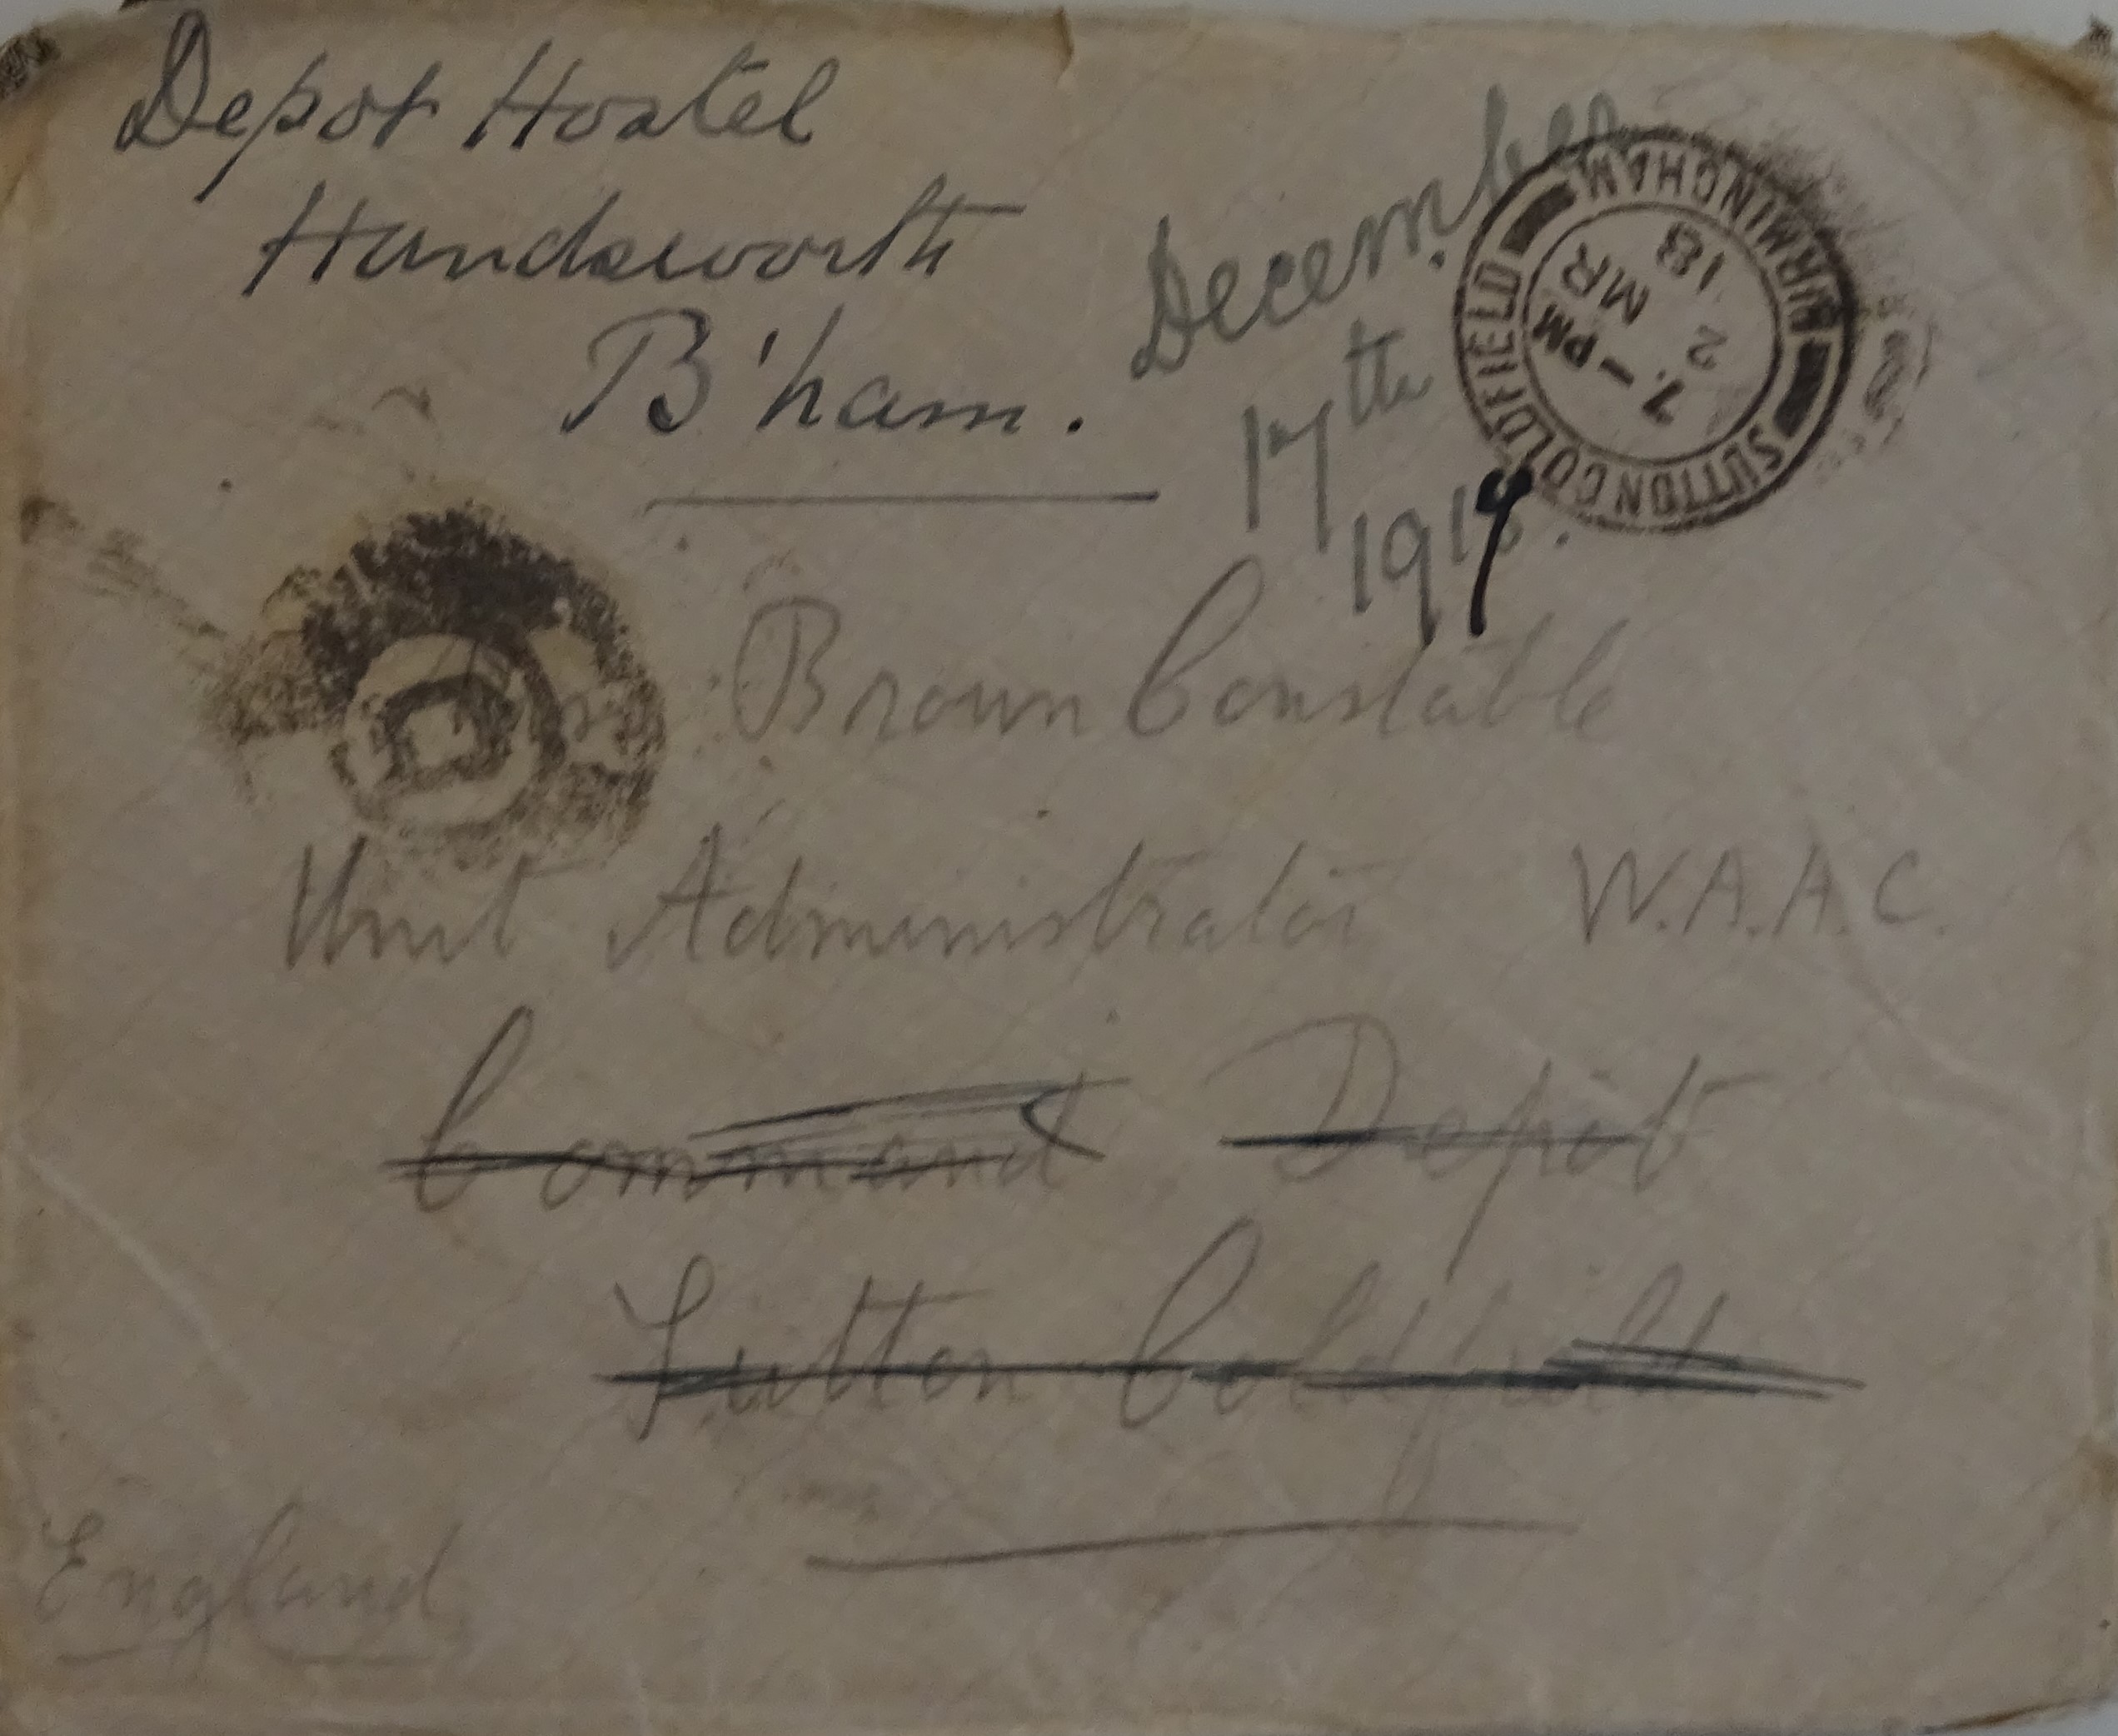 Depot Hostel
Handsworth
B'ham.
December
17th
1917
SUTTON COLDFIELD
BIRMINGHAM
7 - PM
2 MR
18
Brown Constable
Unit Administrator W.A.A.C.
Command Depôt
Sutton Coldfield
England